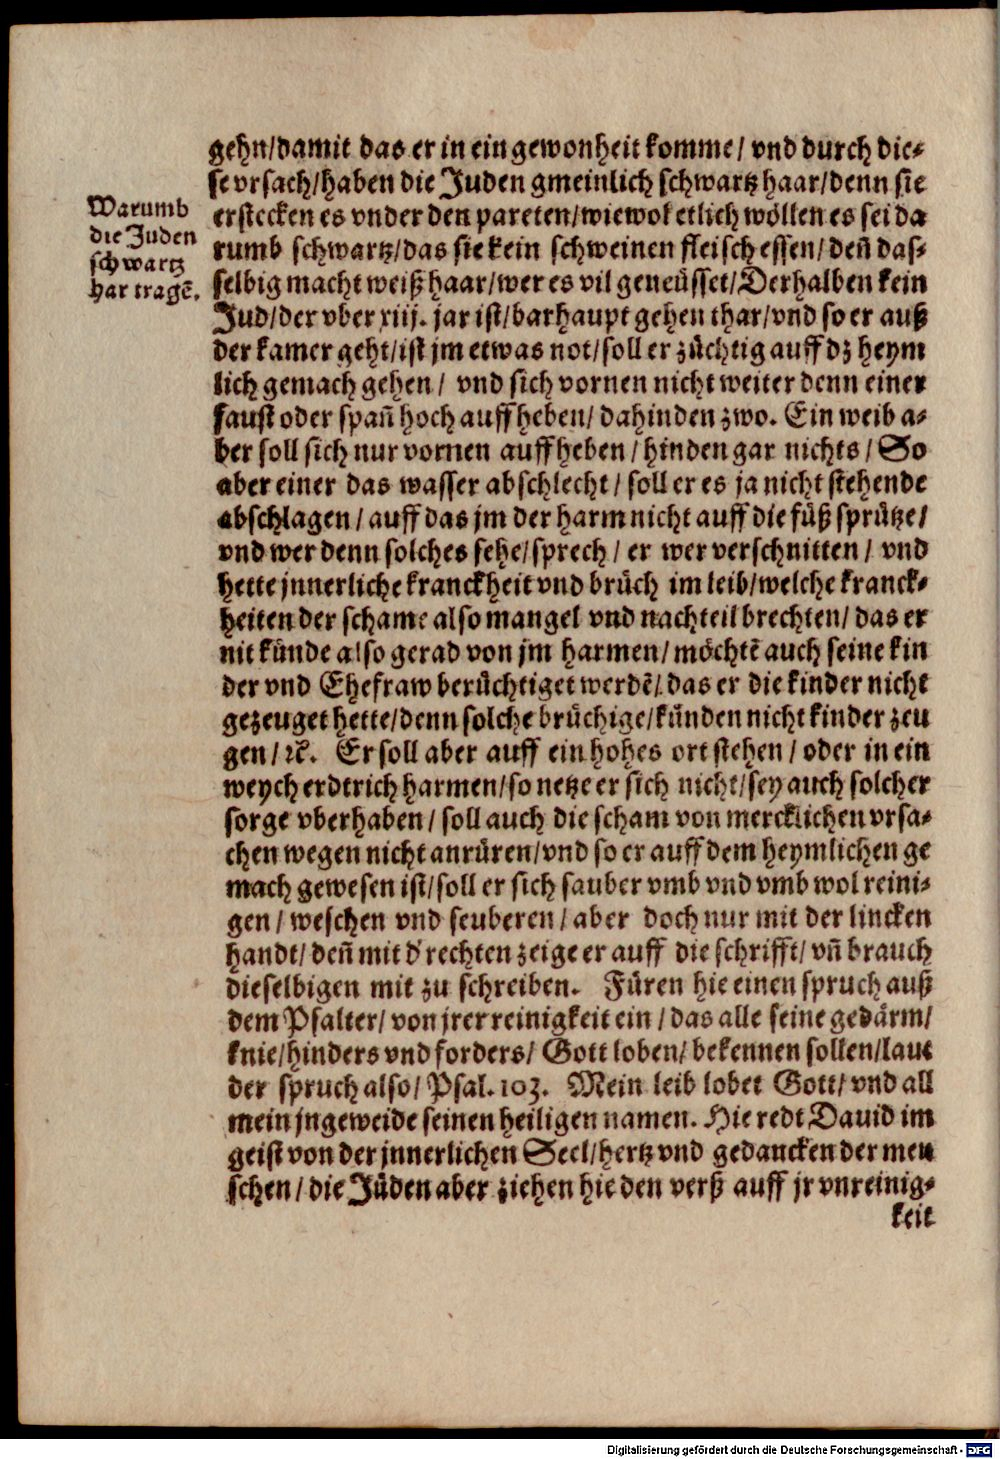 gehn/damit das er in ein gewonheit komme/ vnd durch die⸗
se vrsach/haben die Juden gmeinlich schwartz haar/denn sie
Warumb
die Juden
schwartz
har tragẽ.
erstecken es vnder den pareten/wiewol etlich wöllen es sei da
rumb schwartz/das sie kein schweinen fleisch essen/ deñ das⸗
selbig macht weiß haar/wer es vil geneüsset/Derhalben kein
Jud/der vber xiij. jar ist/barhaupt gehen thar/vnd so er auß
der kamer geht/ist jm etwas not/soll er züchtig auff dz heym
lich gemach gehen/ vnd sich vornen nicht weiter denn einer
faust oder spañ hoch auff heben/ dahinden zwo. Ein weib a⸗
ber soll sich nur vornen auffheben/hinden gar nichts/ So
aber einer das wasser abschlecht/ soll er es ja nicht stehende
abschlagen/ auff das jm der harm nicht auff die füß sprütze/
vnd wer denn solches sehe/sprech/ er wer verschnitten/ vnd
hette jnnerliche kranckheit vnd brüch im leib/welche kranck⸗
heiten der schame also mangel vnd nachteil brechten/ das er
nit künde also gerad von jm harmen/ möchtẽ auch seine kin
der vnd Ehefraw berüchtiget werdẽ/ das er die kinder nicht
gezeuget hette/denn solche brüchige/künden nicht kinder zeu
gen/ ꝛc. Er soll aber auff ein hohes ort stehen/ oder in ein
weych erdtrich harmen/so netze er sich nicht/sey auch solcher
sorge vberhaben/ soll auch die scham von mercklichen vrsa⸗
chen wegen nicht anrüren/vnd so er auff dem heymlichen ge
mach gewesen ist/soll er sich sauber vmb vnd vmb wol reini⸗
gen/ weschen vnd seuberen/ aber doch nur mit der lincken
handt/ deñ mit d' rechten zeige er auff die schrifft/ vñ brauch
dieselbigen mit zu schreiben. Füren hie einen spruch auß
dem Psalter/ von jrer reinigkeit ein/ das alle seine gedärm/
knie/hinders vnd forders/ Gott loben/ bekennen sollen/laut
der spruch also/ Psal. 103. Mein leib lobet Gott/ vnd all
mein jngeweide seinen heiligen namen. Hie redt Dauid im
geist von der jnnerlichen Seel/hertz vnd gedancken der men
schen/ die Jüden aber ziehen hie den verß auff jr vnreinig⸗
keit
Digitalisierung gefördert durch die Deutsche Forschungsgemeinschaft - DFG